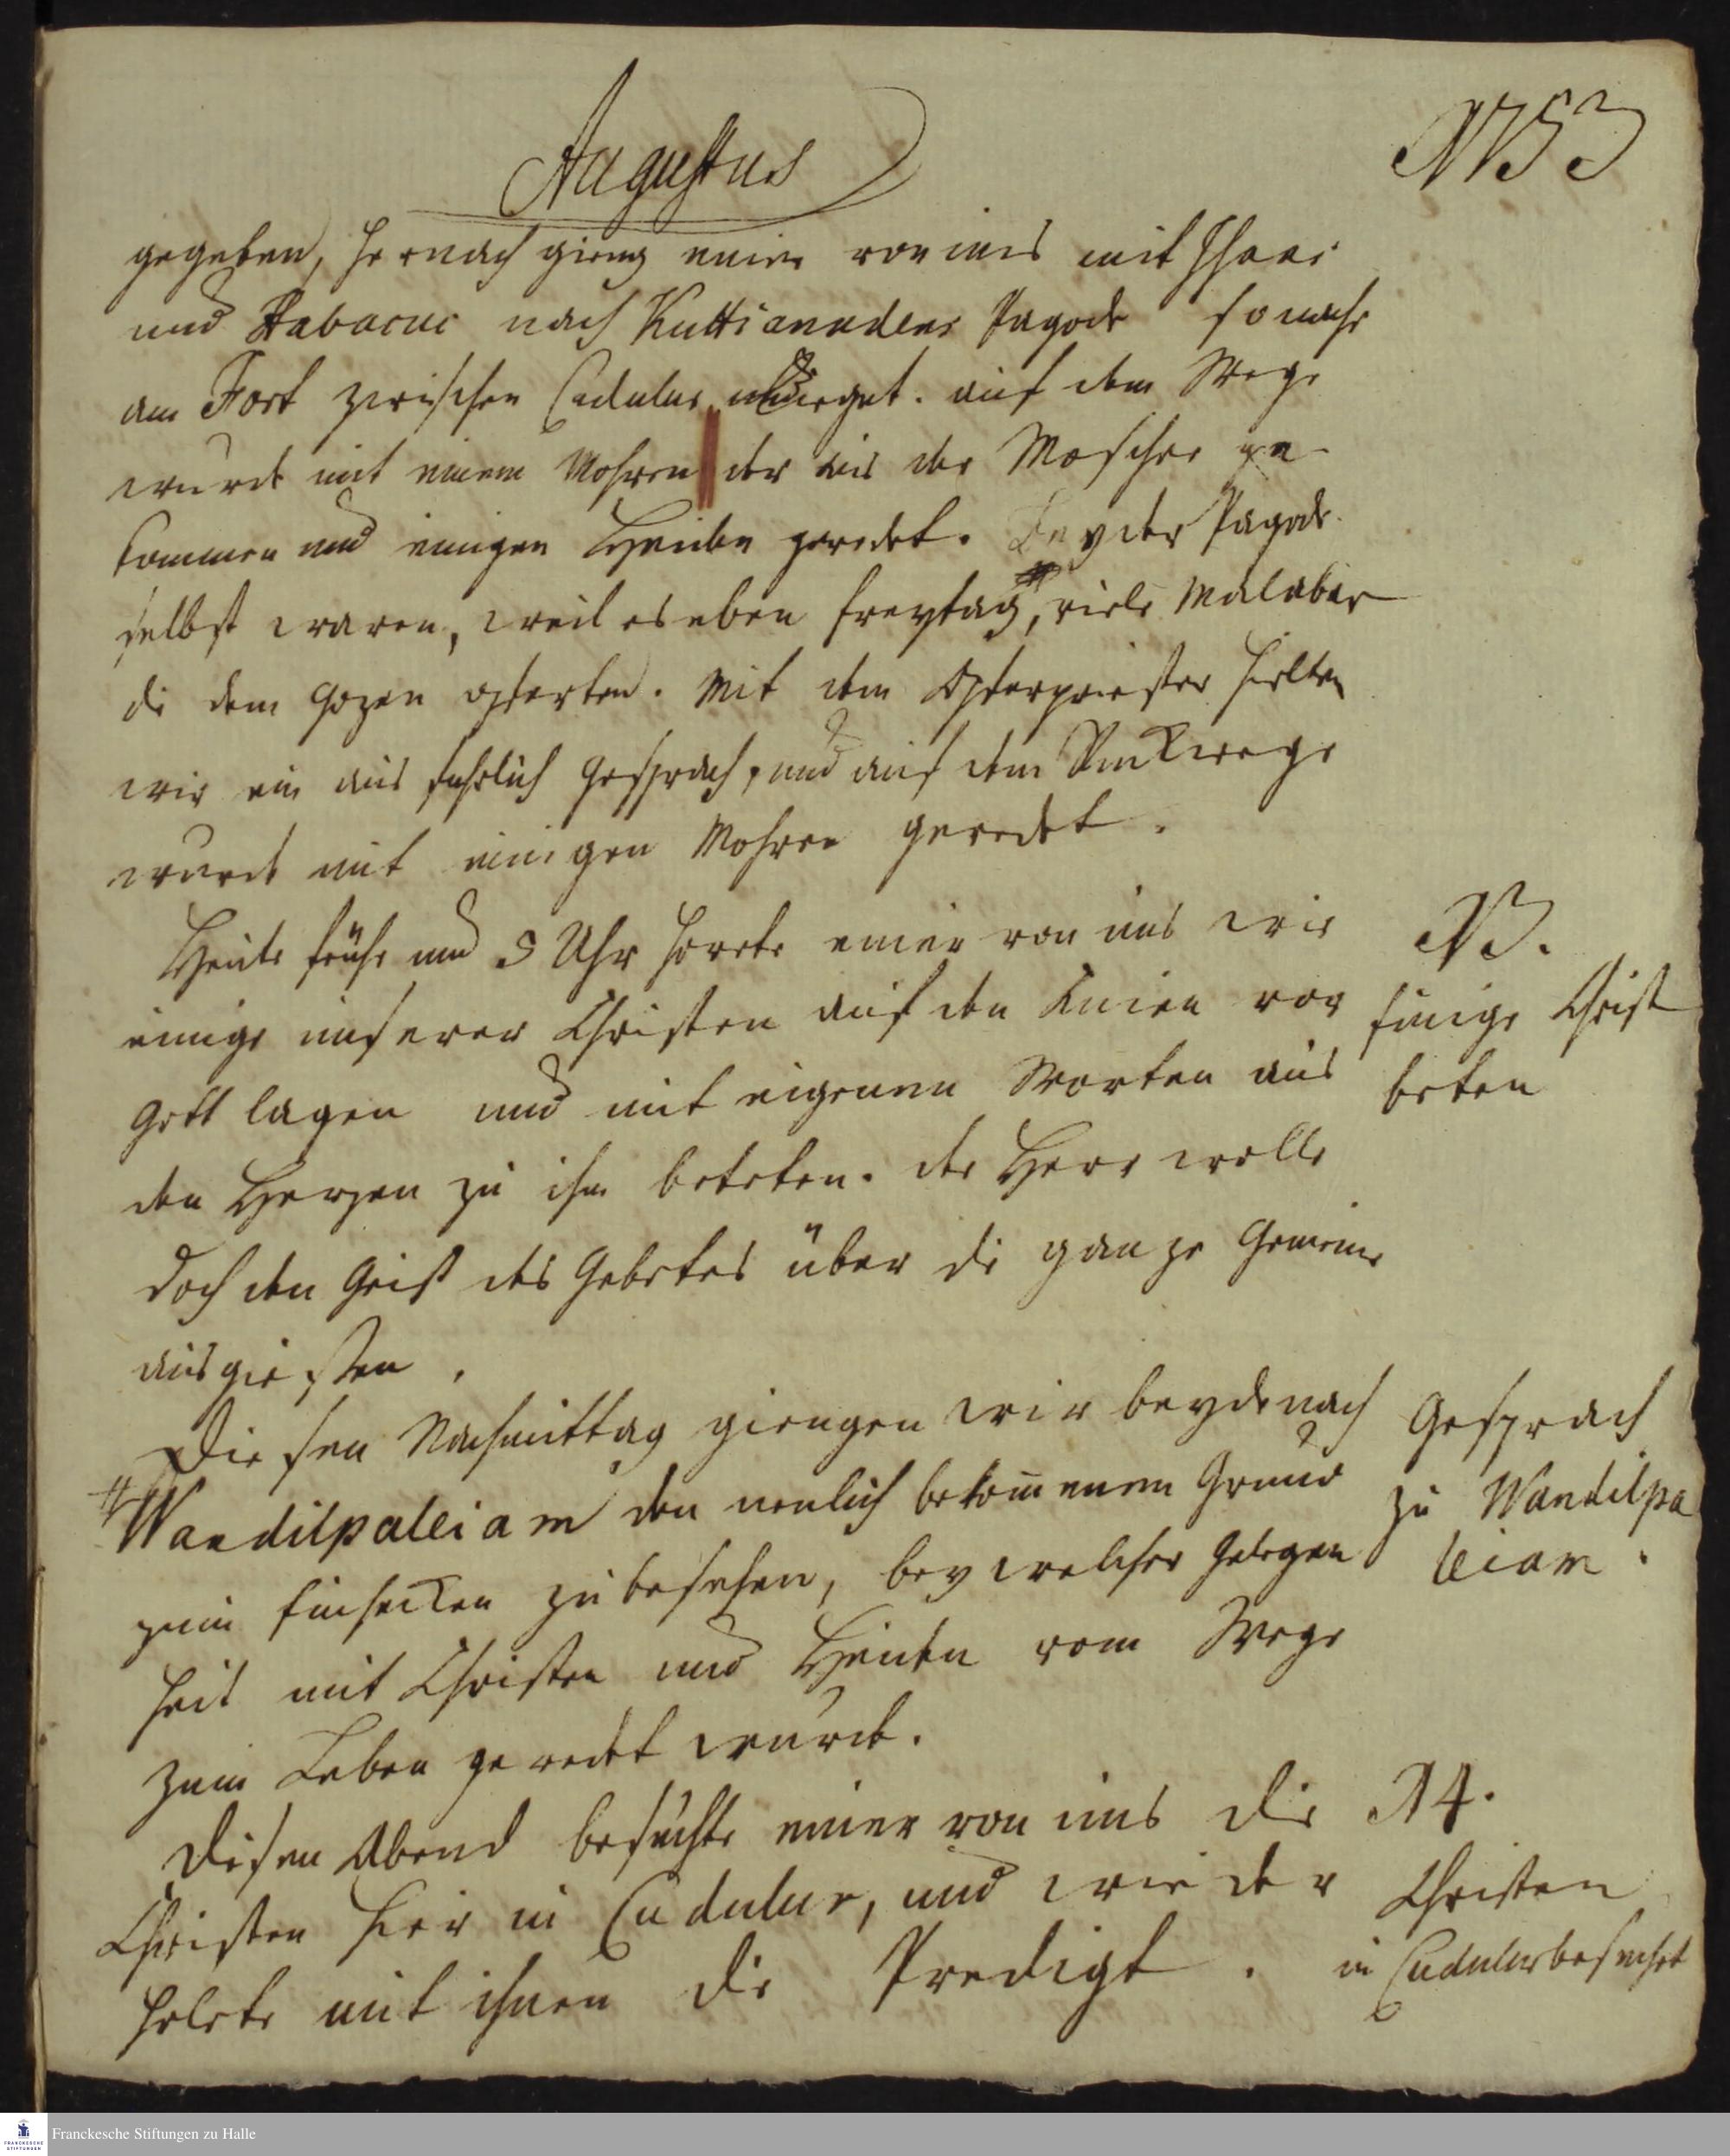 Augustus
1753
gegeben, hernach gieng einer von uns mit Isaac
und Habacuc nach Kuttianudens Pagode so nahe
am Fort zwischen Cudulur u. lieget. auf dem Wege
wurde mit einem Mohren der aus der Moschee ge-
kommen und einigen Heiden geredet. Bey der Pagode
selbst waren, weil es eben freytag, viele Malabar
die dem Gozen opferten. Mit dem Opferpriester hielten
wir ein aus fuhrlich Gesprach, und auf dem Ruckwege
wurde mit einigen Mohren geredet.
Heute frühe um 5 Uhr horete einer von uns wie
einige unserer Christen auf den Knien vor
Gott lagen und mit eigenen Worten aus
den Herzen zu ihm beteten. der Herr wolle
doch den Geist des Gebetes über die ganze Gemeine
ausgiessen.
13.
Einige Christ
beten
Diesen Nachmittag giengen wir beyde nach
# Wandilpaleiam den neulich bekom̄enen Grund
zum Einhecken zu besehen, bey welcher Gelegen
heit mit Christen und Heiden vom Wege
zum Leben geredet wurde.
Gesprach
zu Wandilpa
leiam.
Diesen Abend besuchte einer von uns die
Christen hier in Cudulur, und wieder
holete mit ihnen die Predigt.
14.
Christen
in Cudulur besucht
Franckesche Stiftungen zu Halle
FRANCKESCHE
STIFTUNGEN